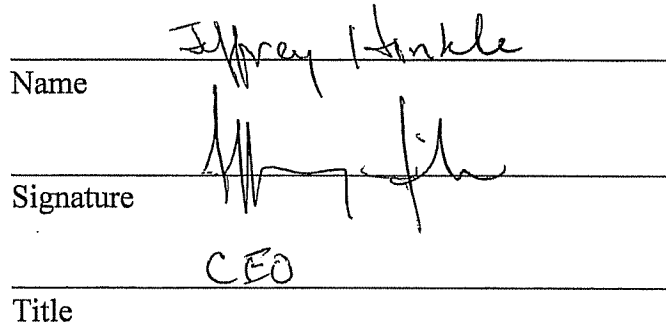 Jeffrey Hinkle
Name
Signature
CEO
Title